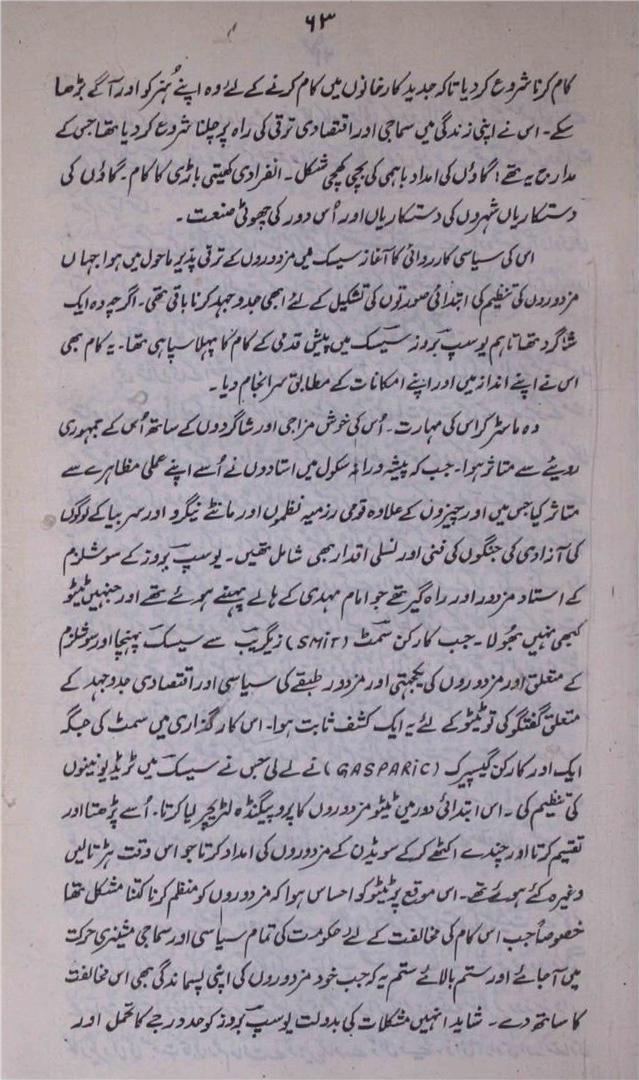 ۶۳
کام کرنا شروع کر دیا تاکہ جدید کارخانوں میں کام کرنے کے لئے وہ اپنے ہُنر کو اور آگے بڑھا
سکے۔ اس نے اپنی زندگی میں سماجی اور اقتصادی ترقی کی راہ پر چلنا شروع کر دیا تھا جس کے
مدارج یہ تھے: گاؤں کی امداد باہمی کی بچی کھچی شکل۔ انفرادی کھیتی باڑی کا کام۔ گاؤں کی
دستکاریاں شہروں کی دستکاریاں اور اُس دور کی چھوٹی صنعت۔
اس کی سیاسی کارروائی کا آغاز سیسک میں مزدوروں کے ترقی پذیر ماحول میں ہوا جہاں
مزدوروں کی تنظیم کی ابتدائی صورتوں کی تشکیل کے لئے ابھی جدوجہد کرنا باقی تھی۔ اگرچہ وہ ایک
شاگرد تھا تاہم یوسپ بروز سیسک میں پیش قدمی کے کام کا پہلا سپاہی تھا۔ یہ کام بھی
اس نے اپنے انداز میں اور اپنے امکانات کے مطابق سرانجام دیا۔
وہ ماسٹر کراس کی مہارت۔ اُس کی خوش مزاجی اور شاگردوں کے ساتھ اُس کے جمہوری
رویئے سے متاثر ہوا۔ جب کہ پیشہ ورانہ سکول میں استادوں نے اُسے اپنے عملی مظاہرے سے
متاثر کیا جس میں اور چیزوں کے علاوہ قومی رزمیہ نظموں اور مانٹے نیگرو اور سربیا کے لوگوں
کی آزادی کی جنگوں کی فنی اور نسلی اقدار بھی شامل تھیں۔ یوسپ بروز کے سوشلزم
کے استاد مزدور اور راہ گیر تھے جو امام مہدی کے ہالے پہنے ہوئے تھے اور جنہیں ٹیٹو
کبھی نہیں بھُولا۔ جب کارکن سمٹ (SMiT) زیگریب سے سیسک پہنچا اور سوشلزم
کے متعلق اور مزدوروں کی یکجہتی اور مزدور طبقے کی سیاسی اور اقتصادی جدوجہد کے
متعلق گفتگو کی تو ٹیٹو کے لئے یہ ایک کشف ثابت ہوا۔ اس کارگذاری میں سمٹ کی جگہ
ایک اور کارکن گیسپرک (GASPARiC) نے لے لی جس نے سیسک میں ٹریڈ یونینوں
کی تنظیم کی۔ اس ابتدائی دور میں ٹیٹو مزدوروں کا پروپیگنڈہ لٹریچر لیا کرتا۔ اُسے پڑھتا اور
تقسیم کرتا اور چندے اکٹھے کر کے سویڈن کے مزدوروں کی امداد کرتا جو اس وقت ہڑتالیں
وغیرہ کئے ہوئے تھے۔ اس موقع پر ٹیٹو کو احساس ہوا کہ مزدوروں کو منظم کرنا کتنا مشکل تھا
خصوصاً جب اس کام کی مخالفت کے لئے حکومت کی تمام سیاسی اور سماجی مشینری حرکت
میں آجائے اور ستم بالائے ستم یہ کہ جب خود مزدوروں کی اپنی پسماندگی بھی اس مخالفت
کا ساتھ دے۔ شاید انہیں مشکلات کی بدولت یوسپ بروز کو حد درجے کا تحمل اور